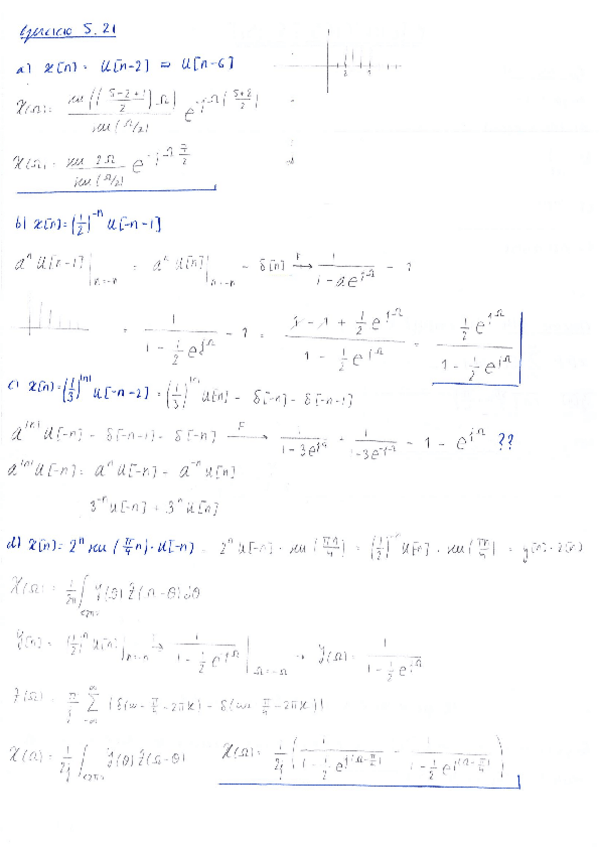 Ejercicio 5.21
a) x[n] = u[n-2] - u[n-6]
X(Ω) = sen((5-2+1)/2 · Ω) / sen(Ω/2) e^-jΩ((5+2)/2)
X(Ω) = sen 2Ω / sen(Ω/2) e^-jΩ 7/2
b) x[n] = (1/2)^-n u[-n-1]
a^n u[n-1]|n=-n = a^n u[n]|n=-n - δ[n] → F 1/(1-ae^jΩ) - 1
= 1/(1 - 1/2 e^jΩ) - 1 = (1 - 1 + 1/2 e^jΩ)/(1 - 1/2 e^jΩ) = (1/2 e^jΩ)/(1 - 1/2 e^jΩ)
c) x[n] = (1/3)^|n| u[-n-2] = (1/3)^|n| u[-n] - δ[-n] - δ[-n-1]
a^|n| u[-n] - δ[-n-1] - δ[-n] → F 1/(1-3e^jΩ) 1/(1-3e^-jΩ) - 1 - e^jΩ ??
a^|n| u[-n] = a^n u[-n] - a^-n u[n]
3^-n u[-n] = 3^n u[n]
d) x[n] = 2^n sen(π/4 n) · u[-n] = 2^n u[-n] · sen(πn/4) = (1/2)^-n u[-n] · sen(πn/4) = y[n] · z[n]
X(Ω) = 1/2π ∫<2π> Y(θ) Z(Ω-θ) dθ
y[n] = (1/2)^n u[n]|n=-n → 1/(1 - 1/2 e^-jΩ)|Ω=-Ω → Y(Ω) = 1/(1 - 1/2 e^jΩ)
Z(Ω) = π/j Σ -∞ ∞ {δ(ω - π/4 - 2πk) - δ(ω + π/4 - 2πk)}
X(Ω) = 1/2j ∫<2π> Y(θ) Z(Ω-θ) X(Ω) = 1/2j (1/(1 - 1/2 e^j(Ω-π/4)) - 1/(1 - 1/2 e^j(Ω+π/4)))